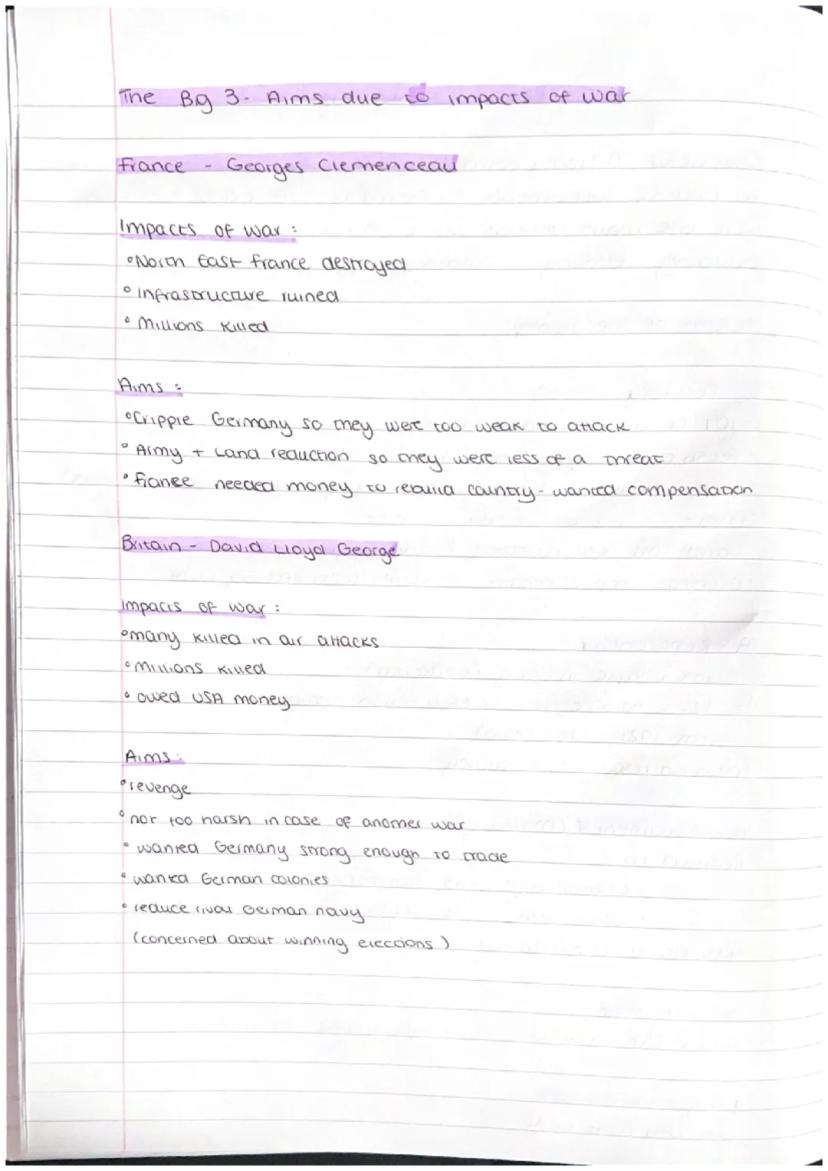 The Big 3 - Aims due to impacts of war
France - Georges Clemenceau
Impacts of war :
• North East france destroyed
• Infrastructure ruined
• Millions killed
Aims :
• Cripple Germany so they were too weak to attack
• Army + Land reduction so they were less of a threat
• France needed money to rebuild country - wanted compensation
Britain - David Lloyd George
Impacts of war :
• many killed in air attacks
• Millions killed
• owed USA money
Aims :
• revenge
• not too harsh in case of another war
• wanted Germany strong enough to trade
• wanted German colonies
• reduce rival German navy
(concerned about winning elections)